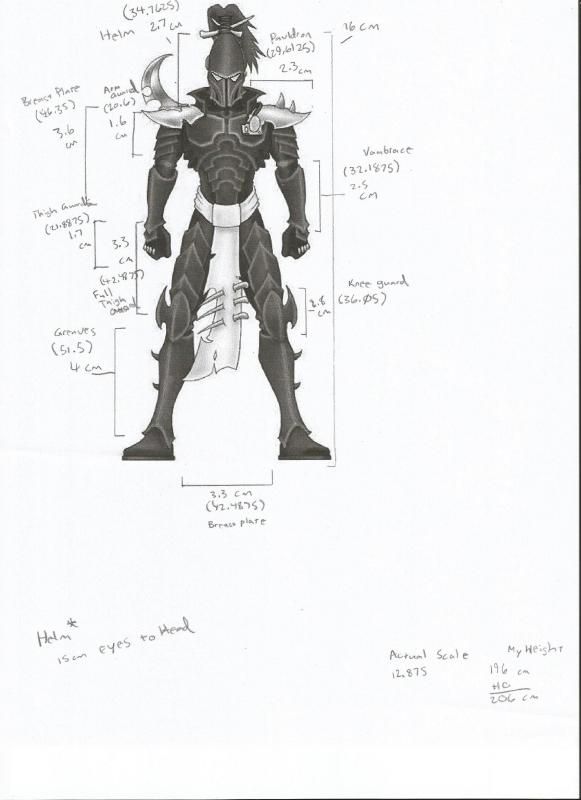 (34.7625)
Helm 2.7 cm
16 cm
Pauldron
(29.6125)
2.3 cm
Breast Plate
(46.35)
3.6
cm
Arm
Guard
(20.6)
1.6
cm
Vambrace
(32.1875)
2.5
cm
Thigh Guard
(21.8875)
1.7
cm
3.3
cm
(42.4875)
Full
Thigh
Guard
Knee guard
(36.05)
2.8
cm
Greaves
(51.5)
4 cm
3.3 cm
(42.4875)
Breast plate
Helm*
15cm eyes to Head
Actual Scale
12.875
My Height
196 cm
+10
206 cm